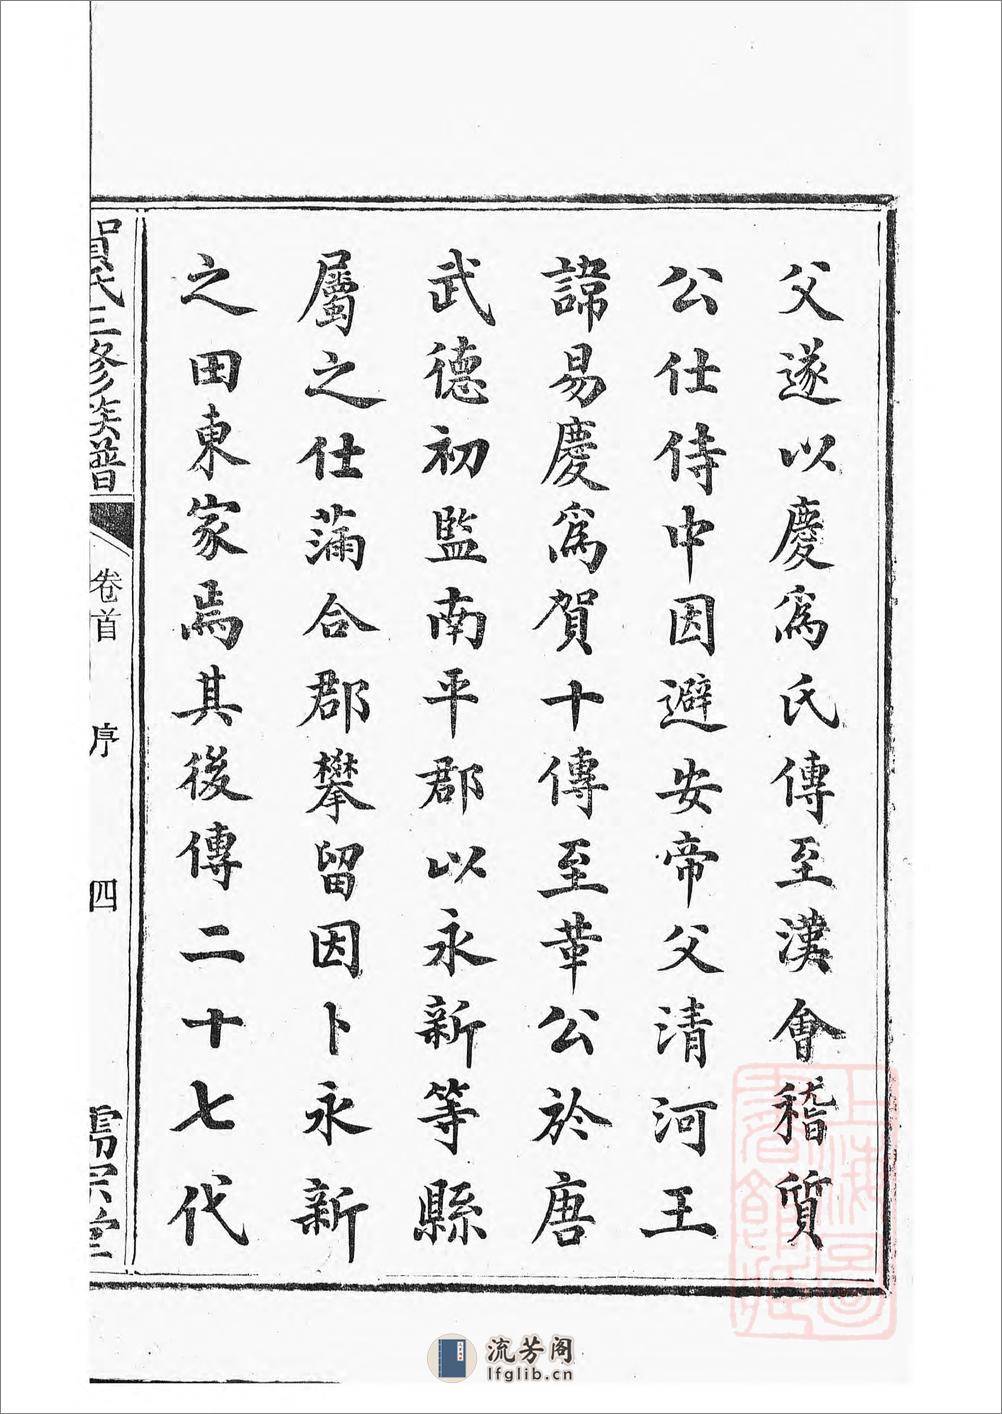 父遂以慶爲氏傳至漢會稽質
公仕侍中因避安帝父清河王
諱易慶爲賀十傳至華公於唐
武德初監南平郡以永新等縣
屬之仕蒲合郡攀留因卜永新
之田東家焉其後傳二十七代
賀氏三修族譜
卷首
序
四
儒宗堂
上海圖書館藏
流芳阁
lfglib.cn